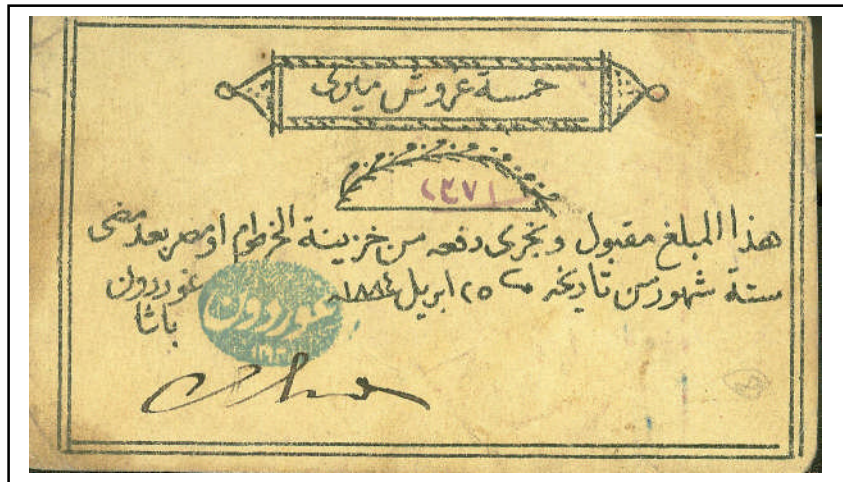 خمسة غروش
هذا المبلغ مقبول ويجرى دفعه من خزينة الخرطوم او مصر بعد مضى
ستة شهور من تاريخه ٢٥ ابريل ١٨٨٤ غوردون
باشا
غوردون